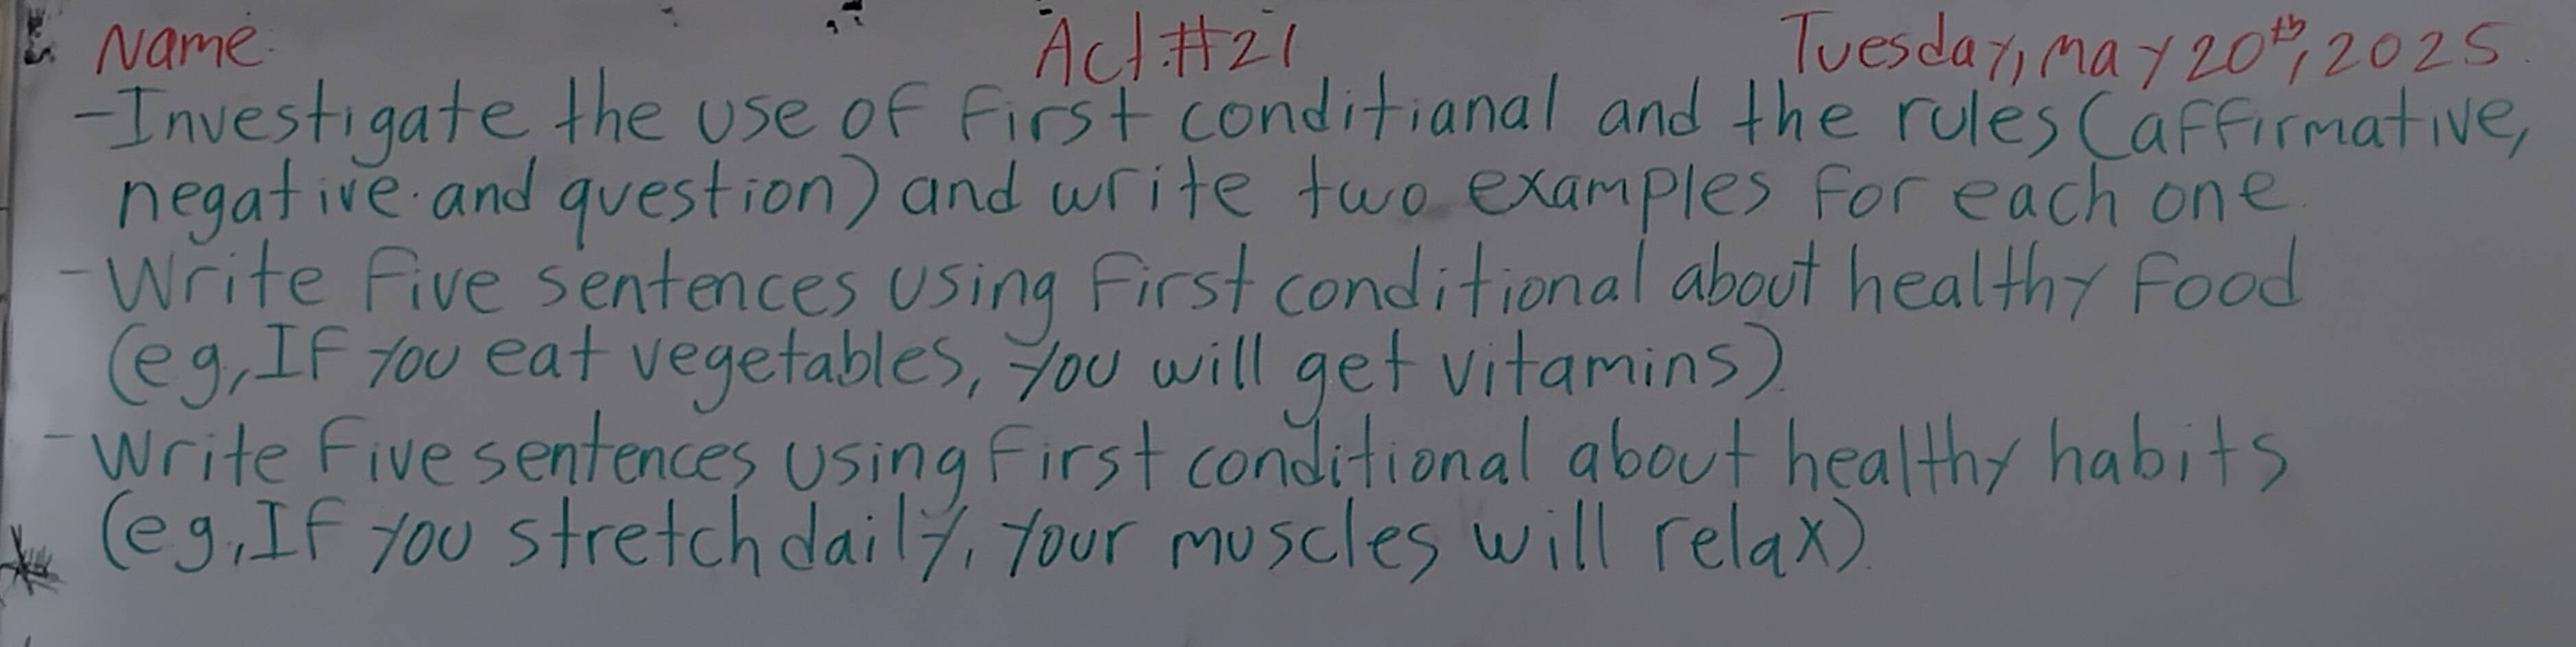 Name: Act.#21 Tuesday, May 20th, 2025.
-Investigate the use of first conditianal and the rules (affirmative,
negative and question) and write two examples for each one.
-Write five sentences using first conditional about healthy food
(eg, If you eat vegetables, you will get vitamins).
-Write five sentences using first conditional about healthy habits
(eg, If you stretch daily, your muscles will relax).